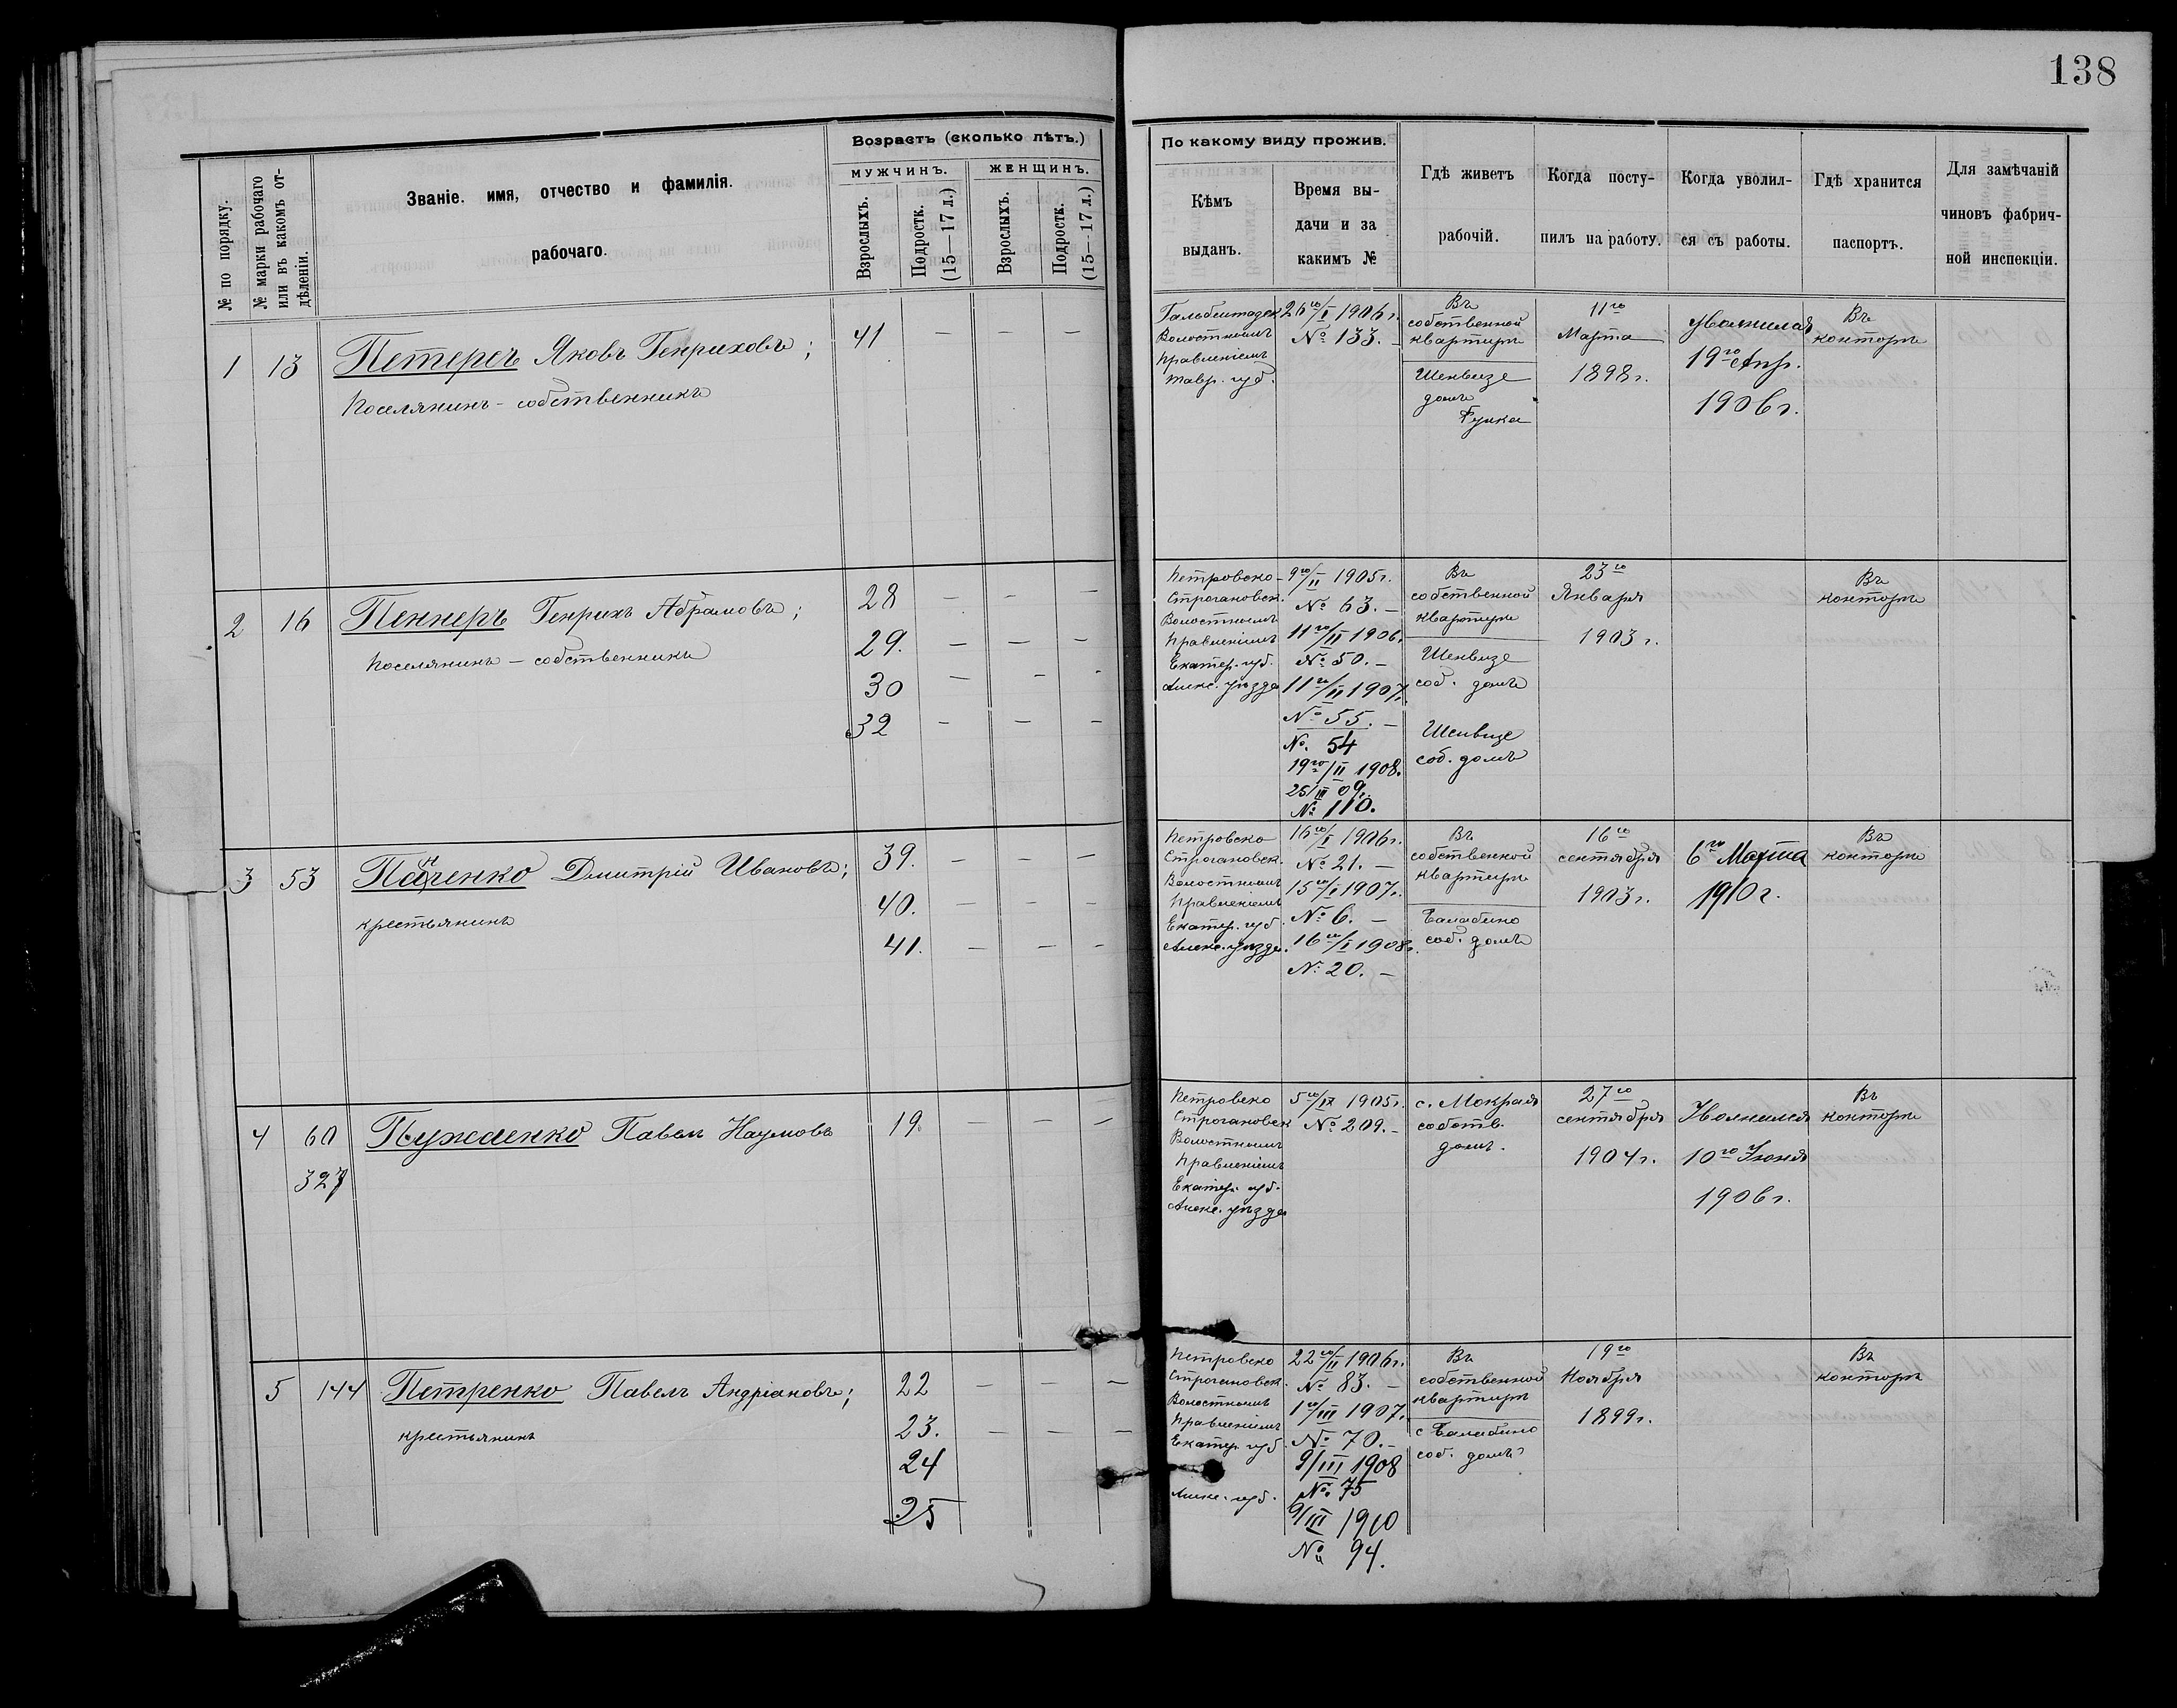 138
Возрастъ (сколько лѣтъ.)
МУЖЧИНЪ.
ЖЕНЩИНЪ.
№ по порядку.
№ марки рабочаго
или въ какомъ от-
дѣленіи.
Званіе. имя, отчество и фамилія.
рабочаго.
Взрослыхъ.
Подростк.
(15—17 л.)
Взрослыхъ.
Подростк.
(15—17 л.)
По какому виду прожив.
Кѣмъ
выданъ.
Время вы-
дачи и за
какимъ №
Гдѣ живетъ
рабочій.
Когда посту-
пилъ на работу.
Когда уволил-
ся съ работы.
Гдѣ хранится
паспортъ.
Для замѣчаній
чиновъ фабрич-
ной инспекціи.
1
13
Петерсъ Яковъ Генриховъ;
Поселянинъ-собственникъ
41 — — —
Гальбштадск
Волостнымъ
Правленіемъ
Тавр. губ.
26го/I 1906 г.
№ 133. —
Въ
собственной
квартирѣ
Шенвизе
домъ
Функа
11го
Марта
1898 г.
Уволился
19го Апр.
1906 г.
Въ
конторѣ
2
16
Пеннеръ Генрихъ Абрамовъ;
Поселянинъ — собственникъ
28 — — —
29. — — —
30 — — -
32 — — —
Петровско-
Строгановск.
Волостнымъ
Правленіемъ
Екатер. губ.
Алекс. уѣзда
9го/II 1905 г.
№ 63. —
11го/II 1906 г.
№ 50. —
11го/II 1907 г.
№ 55. —
№. 54
19го/II 1908.
25/III 09 г.
№ 110.
Въ
собственной
квартирѣ
Шенвизе
соб. домъ
Шенвизе
соб. домъ
23го
Января
1903 г.
Въ
конторѣ
3
53
Панченко Дмитрій Ивановъ;
крестьянинъ
39. — — —
40. — — —
41. — — —
Петровско
Строгановск.
Волостнымъ
Правленіемъ
Екатер. губ.
Алекс. уѣзда.
16го/I 1906 г.
№ 21. —
15го/I 1907 г.
№ 6. —
16го/I 1908 г.
№ 20. —
Въ
собственной
квартирѣ
Балабино
соб. домъ
16го
сентября
1903 г.
6го Марта
1910 г.
Въ
конторѣ
4
60
327
Пужаенко Павелъ Наумовъ
19. — — —
Петровско
Строгановск
Волостнымъ
Правленіемъ
Екатер. губ.
Алекс. уѣзда
5го/IX 1905 г.
№ 209. —
с. Мокрая
собств.
домъ.
27го
сентября
1904 г.
Уволился
10го Іюня
1906 г.
Въ
конторѣ
5
144
Петренко Павелъ Андріановъ;
крестьянинъ
22 — — —
23. — — —
24
25
Петровско
Строгановск.
Волостнымъ
Правленіемъ
Екатер. губ.
Алекс. губ.
22го/II 1906 г.
№ 83. —
1го/III 1907 г.
№ 70. —
9/III 1908
№ 75
9/III 1910
№ 94.
Въ
собственной
квартирѣ
с Балабино
соб. домъ
19го
Ноября
1899 г.
Въ
конторѣ